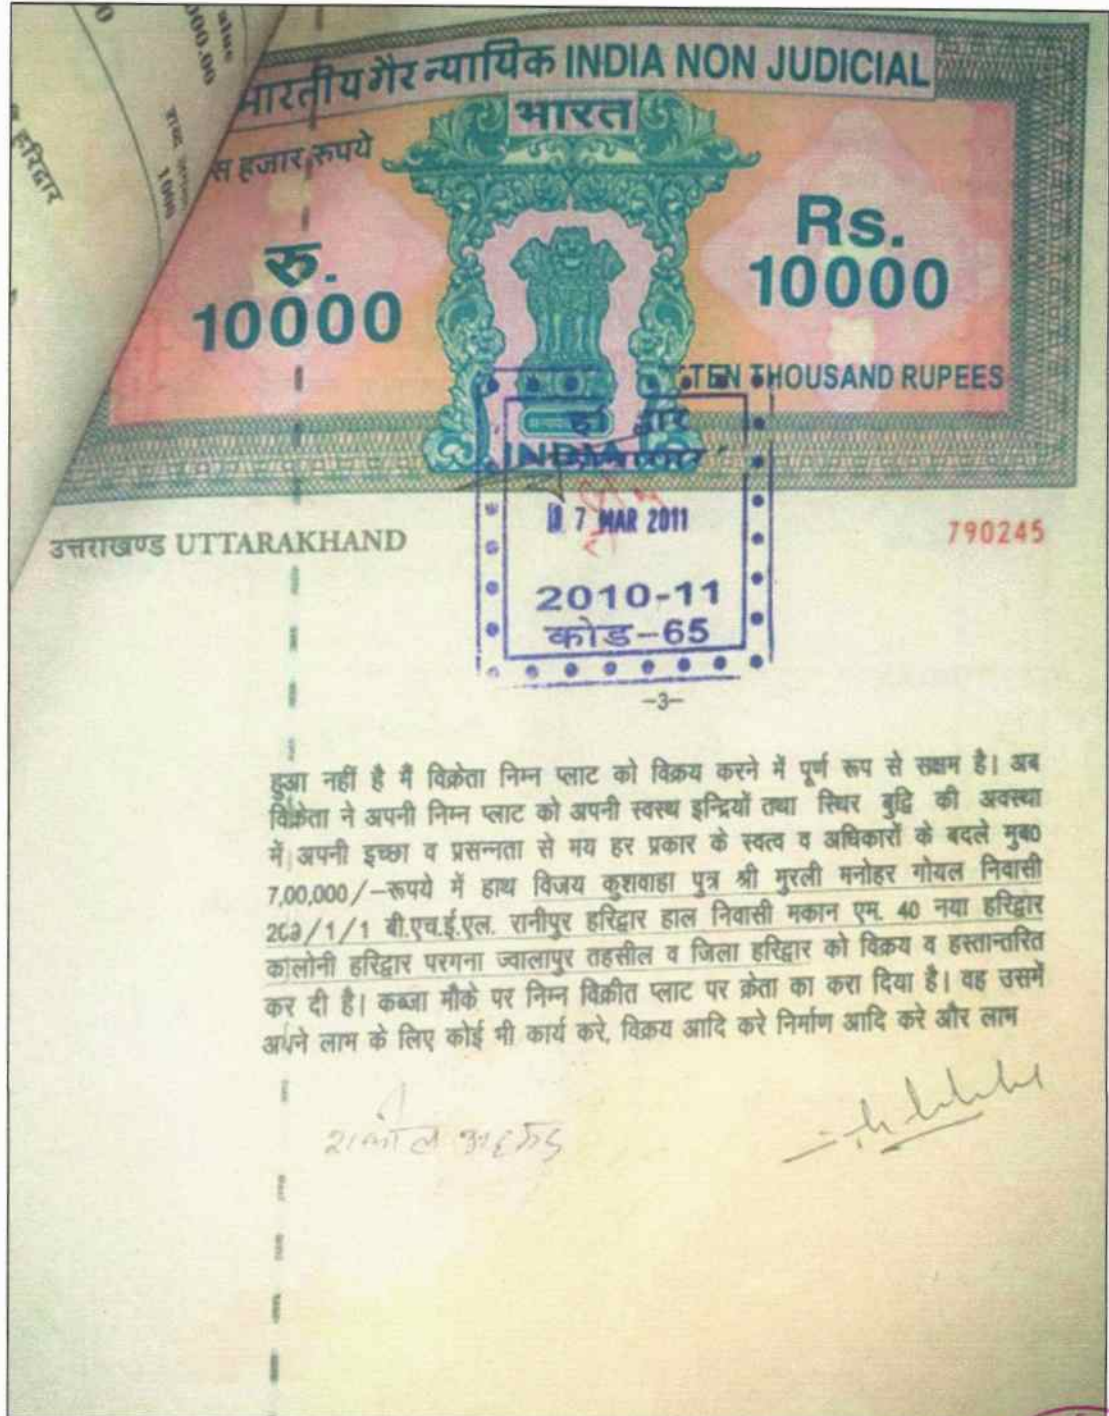 भारतीय गैर न्यायिक INDIA NON JUDICIAL
भारत
स हजार रुपये
रु.
10000
Rs.
10000
TEN THOUSAND RUPEES
INDIA
7 MAR 2011
2010-11
कोड-65
उत्तराखण्ड UTTARAKHAND
790245
000.00
1000
हरिद्वार
-3-
हुआ नहीं है मैं विक्रेता निम्न प्लाट को विक्रय करने में पूर्ण रूप से सक्षम है। अब
विक्रेता ने अपनी निम्न प्लाट को अपनी स्वस्थ इन्द्रियों तथा स्थिर बुद्धि की अवस्था
में अपनी इच्छा व प्रसन्नता से मय हर प्रकार के स्वत्व व अधिकारों के बदले मुब0
7,00,000/-रूपये में हाथ विजय कुशवाहा पुत्र श्री मुरली मनोहर गोयल निवासी
/1/1 बी.एच.ई.एल. रानीपुर हरिद्वार हाल निवासी मकान एम. 40 नया हरिद्वार
कालोनी हरिद्वार परगना ज्वालापुर तहसील व जिला हरिद्वार को विक्रय व हस्तान्तरित
कर दी है। कब्जा मौके पर निम्न विक्रीत प्लाट पर क्रेता का करा दिया है। वह उसमें
अपने लाभ के लिए कोई भी कार्य करे, विक्रय आदि करे निर्माण आदि करे और लाभ